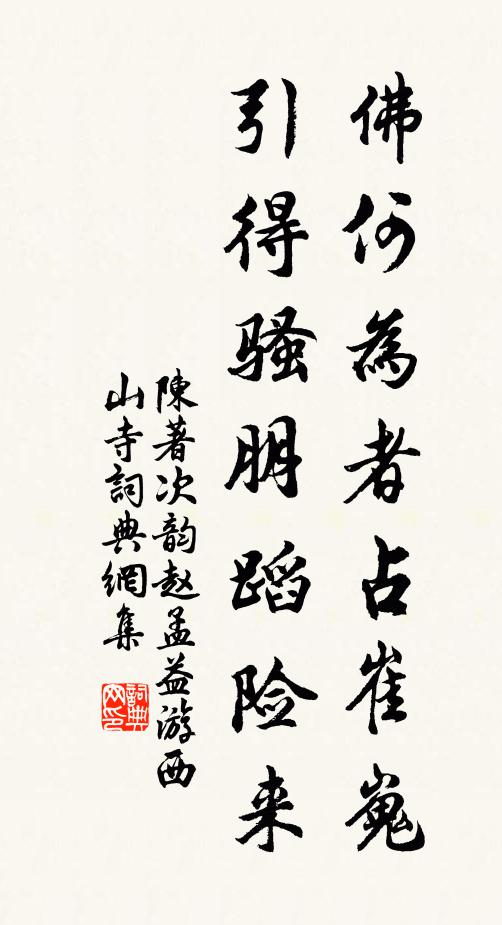 佛何為者占崔嵬
引得骚朋蹈险来
陳著次韵赵孟益游西
山寺詞典網集
詞典
网印